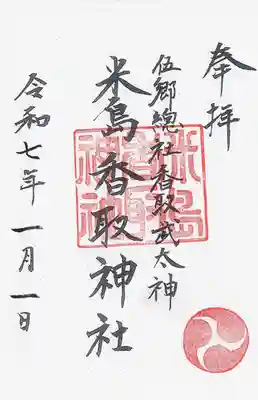 奉拝
伍郷總社香取武大神
米島香取神社
令和七年一月一日